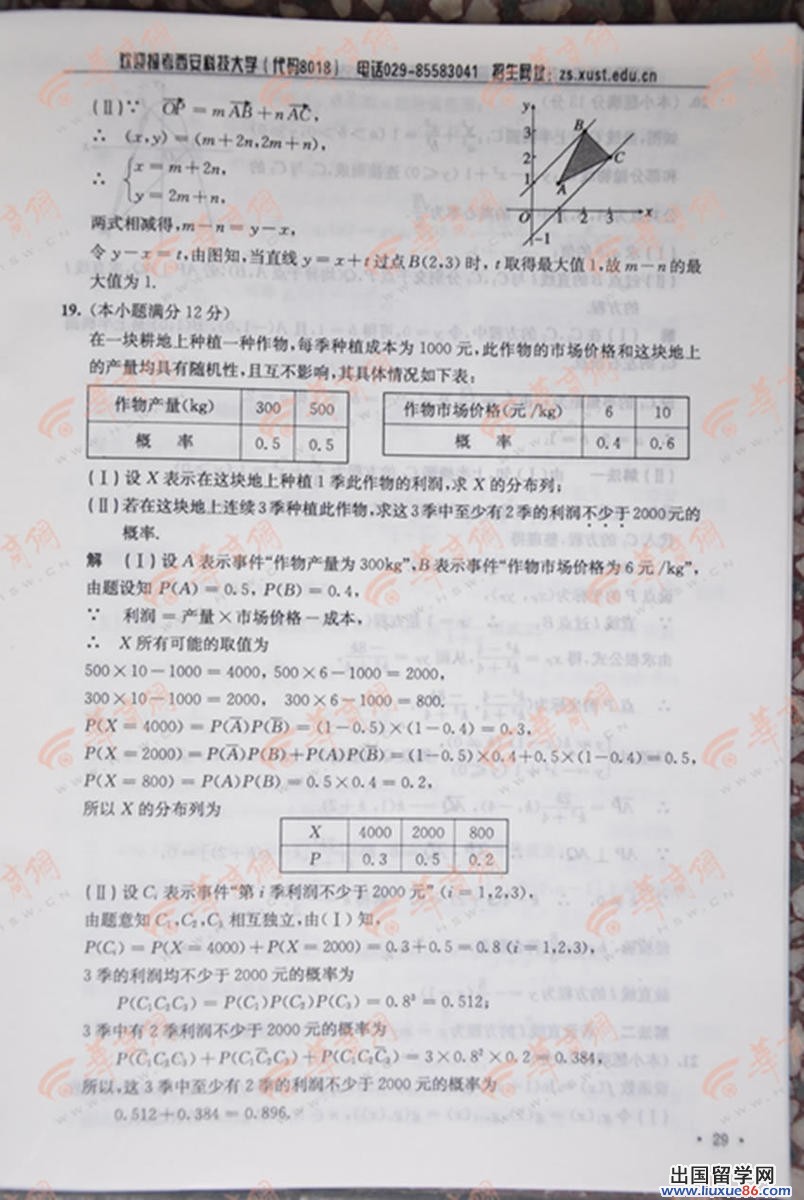 欢迎报考西安科技大学(代码8018) 电话029-85583041 招生网址:zs.xust.edu.cn
(Ⅱ)∵ OP = mAB + nAC,
∴ (x,y) = (m+2n,2m+n),
∴ {x = m+2n,
y = 2m+n,
两式相减得,m-n = y-x,
令 y-x = t,由图知,当直线 y = x+t 过点 B(2,3) 时,t 取得最大值 1,故 m-n 的最
大值为 1.
y
3
2
1
O
1 2 3 x
-1
A
B
C
19. (本小题满分 12 分)
在一块耕地上种植一种作物,每季种植成本为 1000 元,此作物的市场价格和这块地上
的产量均具有随机性,且互不影响,其具体情况如下表:
作物产量(kg) 300 500
概 率 0.5 0.5
作物市场价格(元/kg) 6 10
概 率 0.4 0.6
(Ⅰ) 设 X 表示在这块地上种植 1 季此作物的利润,求 X 的分布列;
(Ⅱ) 若在这块地上连续 3 季种植此作物,求这 3 季中至少有 2 季的利润不少于 2000 元的
概率.
解 (Ⅰ) 设 A 表示事件“作物产量为 300kg”,B 表示事件“作物市场价格为 6 元/kg”,
由题设知 P(A) = 0.5, P(B) = 0.4,
∵ 利润 = 产量×市场价格-成本,
∴ X 所有可能的取值为
500×10-1000 = 4000, 500×6-1000 = 2000,
300×10-1000 = 2000, 300×6-1000 = 800.
P(X = 4000) = P(A̅)P(B̅) = (1-0.5)×(1-0.4) = 0.3,
P(X = 2000) = P(A̅)P(B)+P(A)P(B̅) = (1-0.5)×0.4+0.5×(1-0.4) = 0.5,
P(X = 800) = P(A)P(B) = 0.5×0.4 = 0.2,
所以 X 的分布列为
X 4000 2000 800
P 0.3 0.5 0.2
(Ⅱ) 设 Cᵢ 表示事件“第 i 季利润不少于 2000 元” (i = 1,2,3),
由题意知 C₁,C₂,C₃ 相互独立,由(Ⅰ)知,
P(Cᵢ) = P(X = 4000)+P(X = 2000) = 0.3+0.5 = 0.8 (i = 1,2,3),
3 季的利润均不少于 2000 元的概率为
P(C₁C₂C₃) = P(C₁)P(C₂)P(C₃) = 0.8³ = 0.512;
3 季中有 2 季利润不少于 2000 元的概率为
P(C̅₁C₂C₃)+P(C₁C̅₂C₃)+P(C₁C₂C̅₃) = 3×0.8²×0.2 = 0.384,
所以,这 3 季中至少有 2 季的利润不少于 2000 元的概率为
0.512+0.384 = 0.896.
· 29 ·
出国留学网
www.liuxue86.com